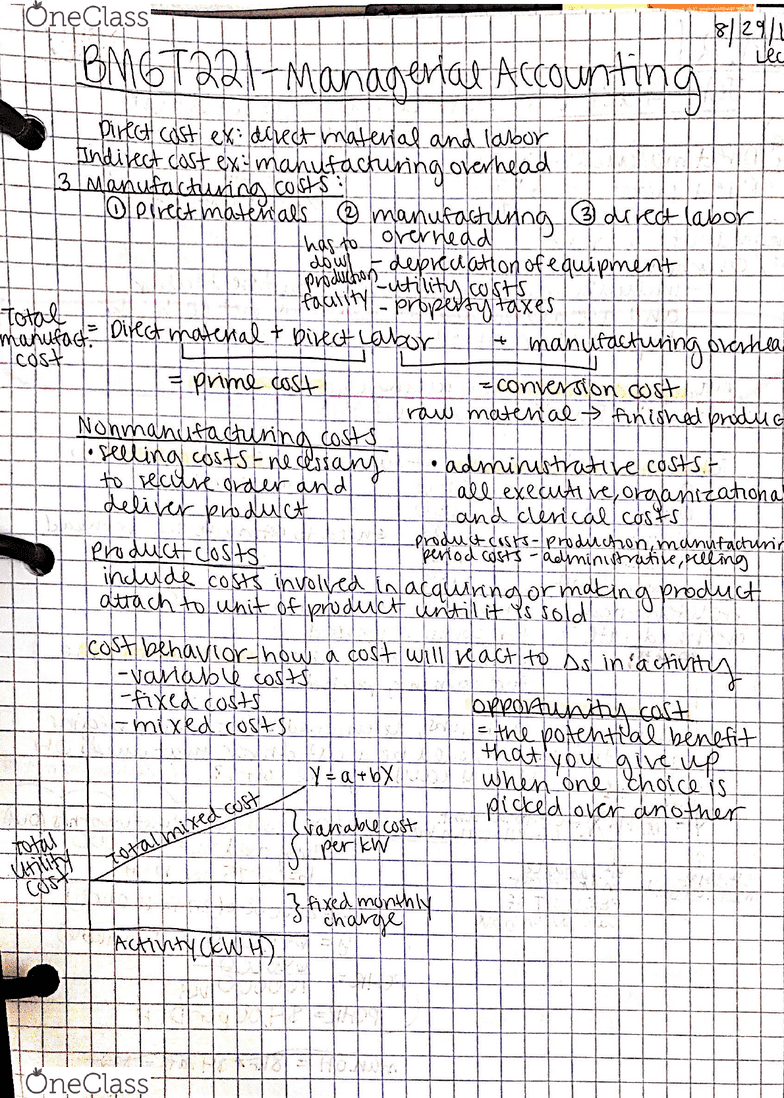 OneClass
8/29/1
Lec
BMGT221-Managerial Accounting
Direct cost ex: direct material and labor
Indirect cost ex: manufacturing overhead
3 Manufacturing costs:
① Direct materials ② manufacturing overhead ③ direct labor
has to do w/ production facility
- depreciation of equipment
- utility costs
- property taxes
Total manufact. cost = Direct material + Direct Labor + manufacturing overhea
= prime cost
= conversion cost
raw material → finished produc
Nonmanufacturing costs
• selling costs - necessary
to secure order and
deliver product
• administrative costs -
all executive, organizational
and clerical costs
product costs - production, manufacturin
period costs - administrative, selling
product costs
include costs involved in acquiring or making product
attach to unit of product until it is sold
cost behavior - how a cost will react to Δs in activity
- variable costs
- fixed costs
- mixed costs
opportunity cost
= the potential benefit
that you give up
when one choice is
picked over another
Y = a + bX
Total mixed cost
} variable cost
per kW
Total
Utility
Cost
} fixed monthly
charge
Activity (kWH)
OneClass